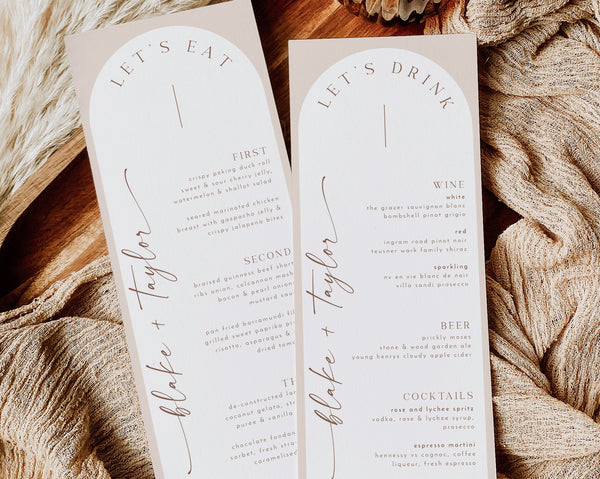 LET'S EAT
blake + Taylor
FIRST
crispy peking duck roll
sweet & sour cherry jelly,
watermelon & shallot salad
seared marinated chicken
breast with gaspacho jelly &
crispy jalapeno bites
SECOND
braised guinness beef short
ribs onion, colcannon mas
bacon & pearl onion,
mustard sau
pan fried barramundi fil
grilled sweet paprika pr
risotto, asparagus &
dried tom
TH
de-constructed lam
coconut gelato, str
puree & vanilla
chocolate fondan
sorbet, fresh stra
caramelised
LET'S DRINK
blake + Taylor
WINE
white
the grazer sauvignon blanc
bombshell pinot grigio
red
ingram road pinot noir
teusner wark family shiraz
sparkling
nv en vie blanc de noir
villa sandi prosecco
BEER
prickly moses
stone & wood garden ale
young henrys cloudy apple cider
COCKTAILS
rose and lychee spritz
vodka, rose & lychee syrup,
prosecco
espresso martini
hennessy vs cognac, coffee
liqueur, fresh espresso